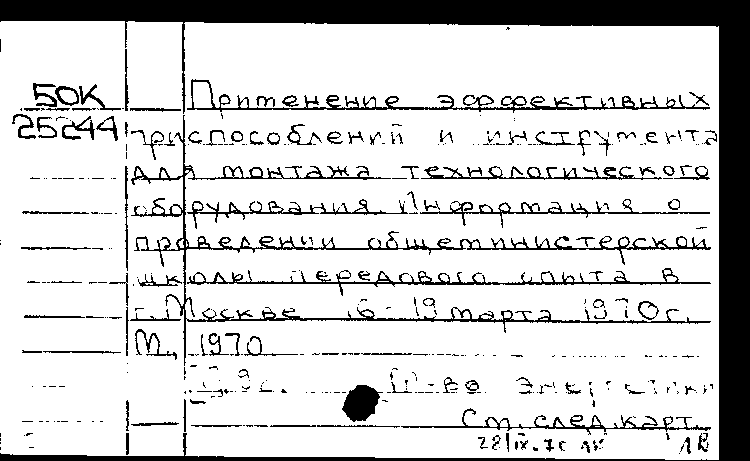 50К Применение эффективных
25244 приспособлений и инструмента
для монтажа технологического
оборудования. Информация о
проведении общеминистерской
школы передового опыта в
г. Москве 16-19 марта 1970г.
М., 1970
9с. Энергетики
См. след. карт.